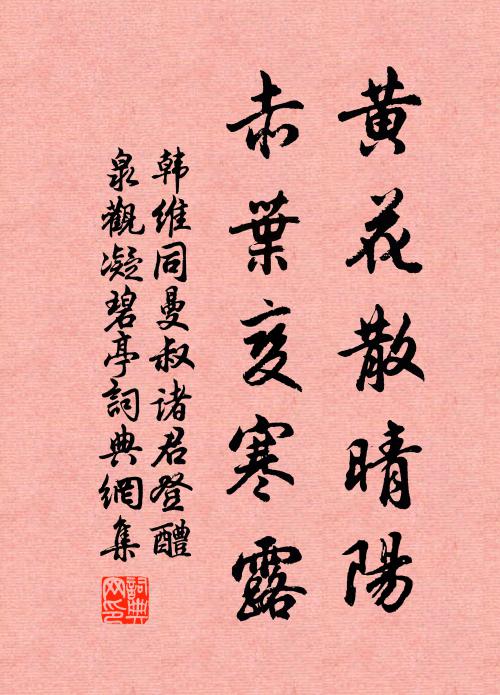 黄花散晴陽
赤葉变寒露
韩维同曼叔诸君登醴
泉觀凝碧亭詞典網集
詞典网印